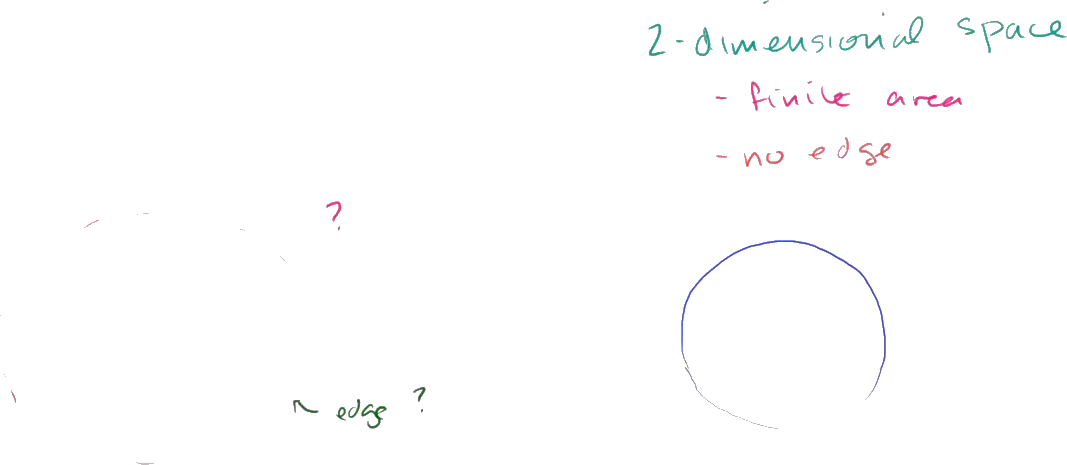 2-dimensional space
- finite area
- no edge
?
edge ?